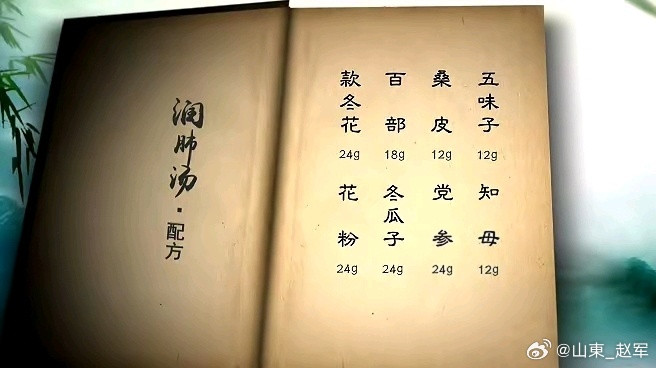 润肺汤·配方
五味子 12g
桑皮 12g
百部 18g
款冬花 24g
知母 12g
党参 24g
冬瓜子 24g
花粉 24g
@山東_赵军